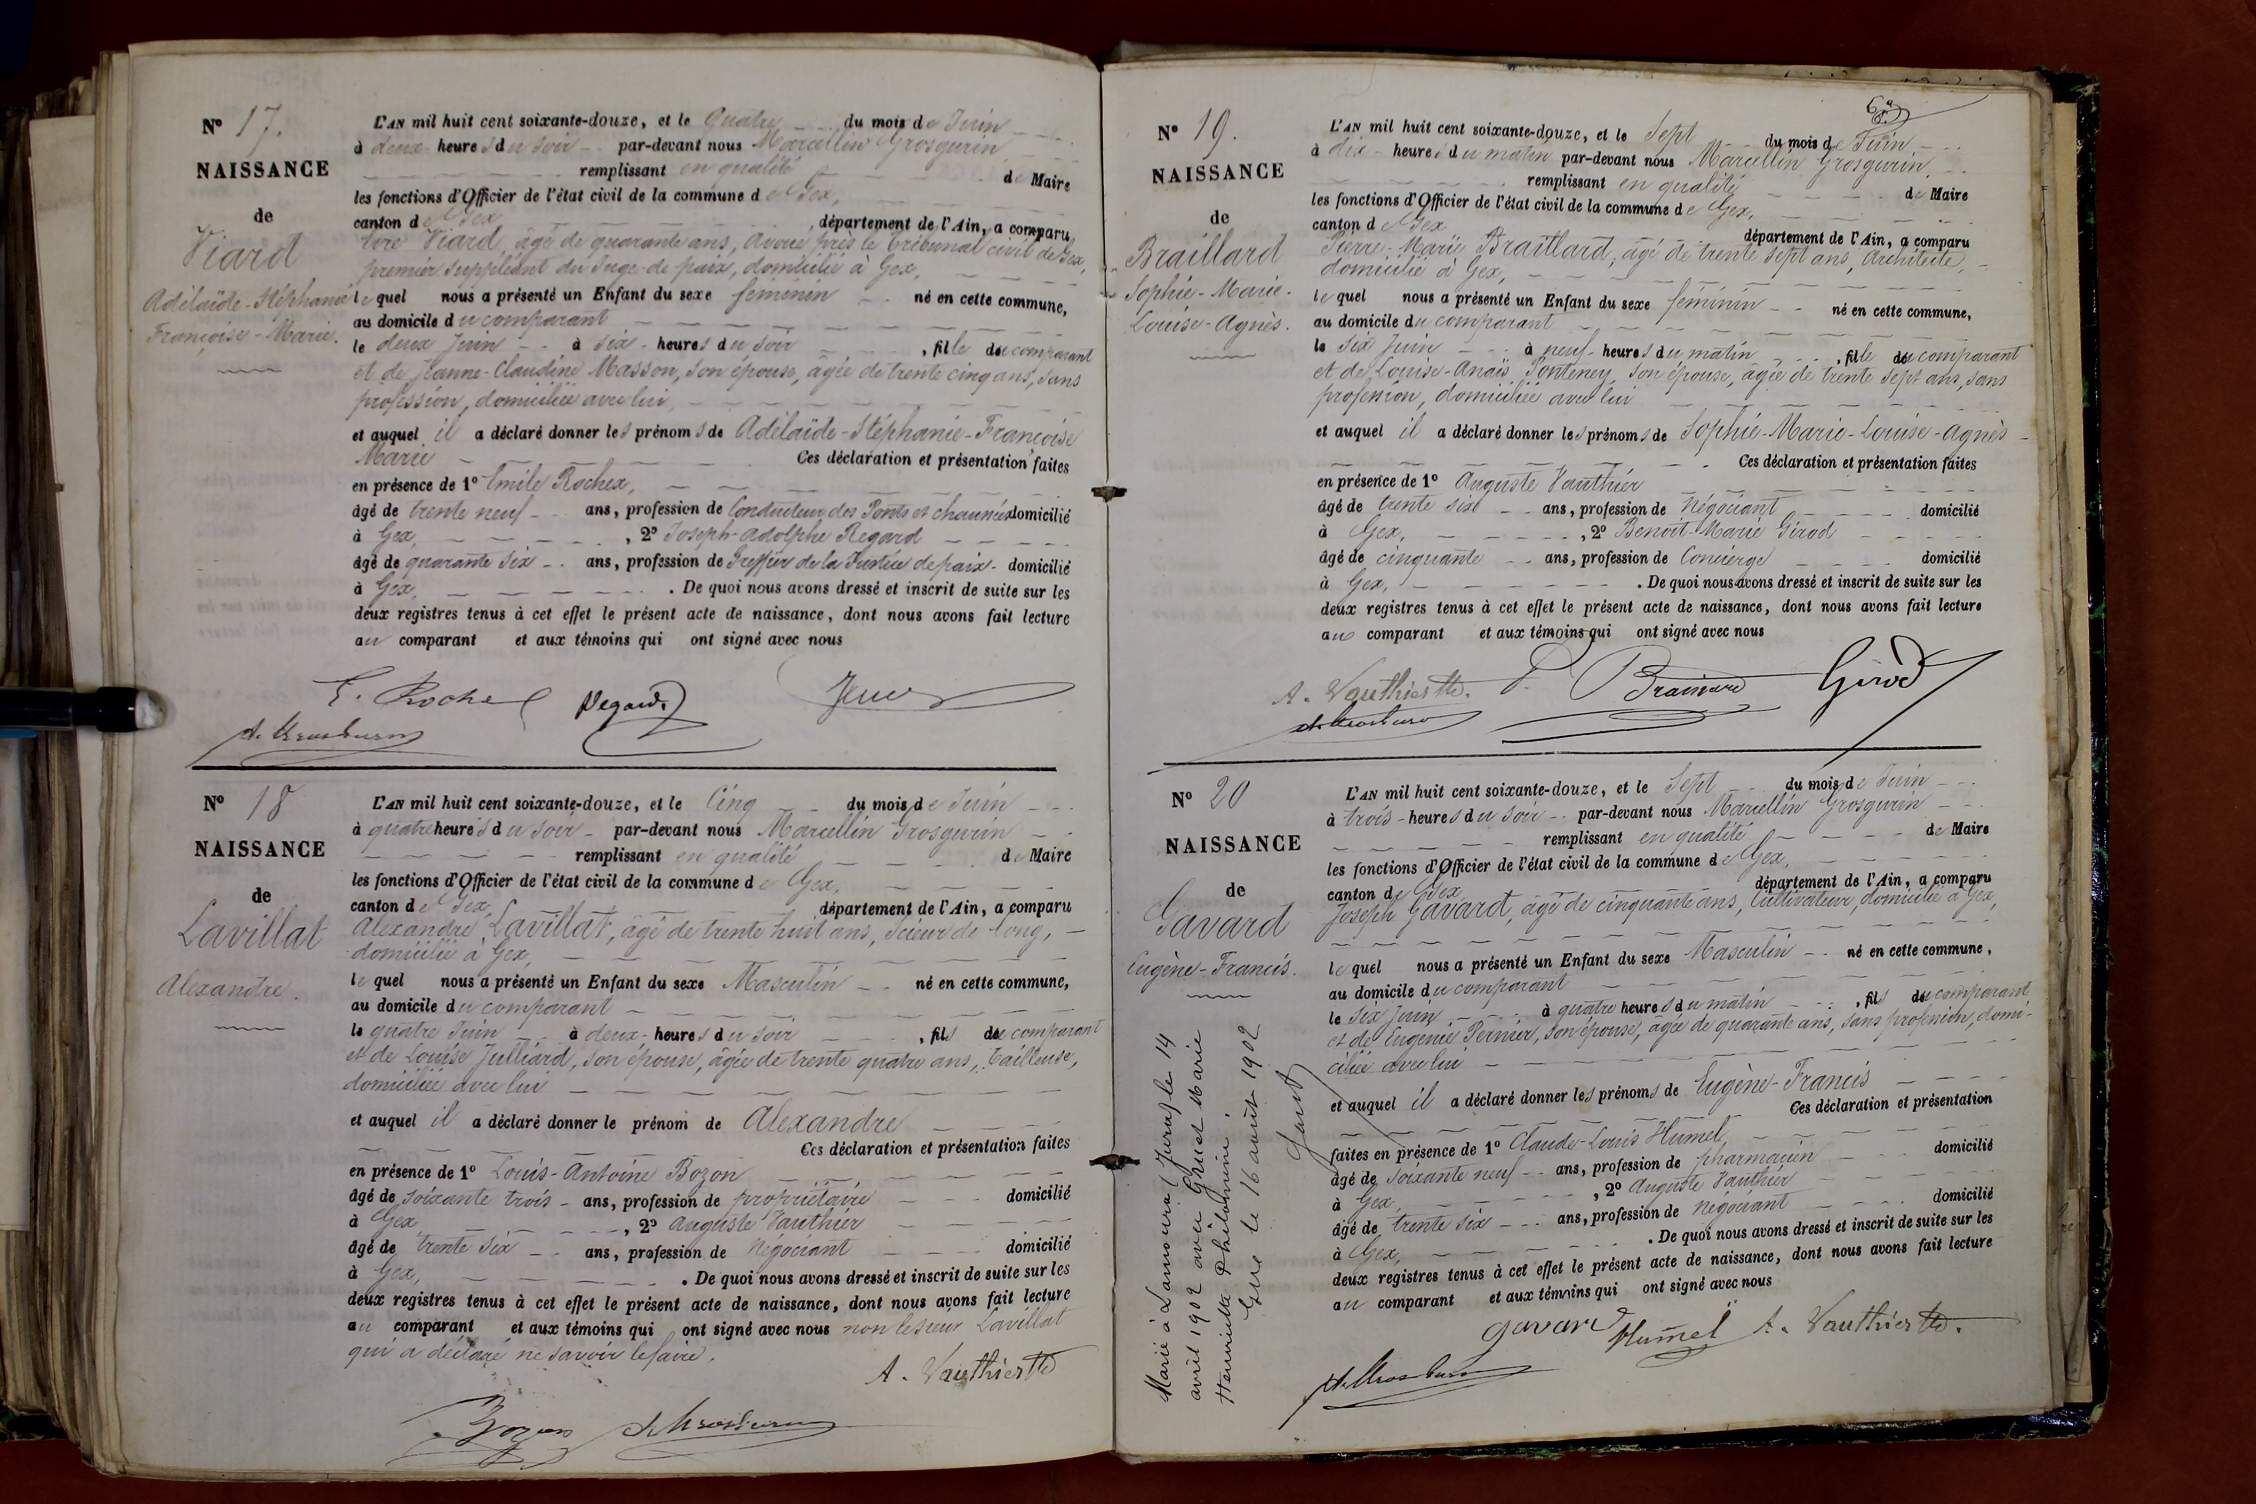 N° 17.
NAISSANCE
de
Viard
Adélaïde-Stéphanie
Françoise-Marie.
L'AN mil huit cent soixante-douze, et le Quatre du mois de Juin
à deux heures du soir par-devant nous Marcellin Grosgurin
remplissant en qualité de Maire
les fonctions d'Officier de l'état civil de la commune de Gex,
canton de Gex département de l'Ain, a comparu
Viard, âgé de quarante ans, avoué près le tribunal civil de Gex,
premier suppléant du Juge de paix, domicilié à Gex,
lequel nous a présenté un Enfant du sexe féminin né en cette commune,
au domicile du comparant
le deux Juin à six heures du soir, fille du comparant
et de Jeanne-Claudine Masson, son épouse, âgée de trente cinq ans, sans
profession, domiciliée avec lui
et auquel il a déclaré donner les prénoms de Adélaïde-Stéphanie-Françoise
Marie Ces déclaration et présentation faites
en présence de 1° Emile Rochex,
âgé de trente neuf ans, profession de Conducteur des Ponts et chaussées domicilié
à Gex, 2° Joseph-Adolphe Regard
âgé de quarante six ans, profession de Greffier de la Justice de paix domicilié
à Gex, . De quoi nous avons dressé et inscrit de suite sur les
deux registres tenus à cet effet le présent acte de naissance, dont nous avons fait lecture
au comparant et aux témoins qui ont signé avec nous
E. Rochex Regard
N° 18
NAISSANCE
de
Lavillat
Alexandre.
L'AN mil huit cent soixante-douze, et le Cinq du mois de Juin
à quatre heures du soir par-devant nous Marcellin Grosgurin
remplissant en qualité de Maire
les fonctions d'Officier de l'état civil de la commune de Gex,
canton de Gex département de l'Ain, a comparu
Alexandre Lavillat, âgé de trente huit ans, Scieur de long,
domicilié à Gex,
lequel nous a présenté un Enfant du sexe Masculin né en cette commune,
au domicile du comparant
le quatre Juin à deux heures du soir, fils du comparant
et de Louise Julliard, son épouse, âgée de trente quatre ans, tailleuse,
domiciliée avec lui
et auquel il a déclaré donner le prénom de Alexandre
Ces déclaration et présentation faites
en présence de 1° Louis-Antoine Bozon
âgé de soixante trois ans, profession de propriétaire domicilié
à Gex, 2° Auguste Vauthier
âgé de trente six ans, profession de Négociant domicilié
à Gex, . De quoi nous avons dressé et inscrit de suite sur les
deux registres tenus à cet effet le présent acte de naissance, dont nous avons fait lecture
au comparant et aux témoins qui ont signé avec nous non le sieur Lavillat
qui a déclaré ne savoir le faire.
A. Vauthier
Bozon
N° 19.
NAISSANCE
de
Braillard
Sophie-Marie-
Louise-Agnès.
L'AN mil huit cent soixante-douze, et le Sept du mois de Juin
à dix heures du matin par-devant nous Marcellin Grosgurin.
remplissant en qualité de Maire
les fonctions d'Officier de l'état civil de la commune de Gex,
canton de Gex département de l'Ain, a comparu
Pierre-Marie Braillard, âgé de trente sept ans, Architecte,
domicilié à Gex,
lequel nous a présenté un Enfant du sexe féminin né en cette commune,
au domicile du comparant
le six Juin à neuf heures du matin, fille du comparant
et de Louise-Anaïs Ponteney, son épouse, âgée de trente sept ans, sans
profession, domiciliée avec lui
et auquel il a déclaré donner les prénoms de Sophie-Marie-Louise-Agnès
Ces déclaration et présentation faites
en présence de 1° Auguste Vauthier
âgé de trente six ans, profession de Négociant domicilié
à Gex, 2° Benoît-Marie Girod
âgé de cinquante ans, profession de Concierge domicilié
à Gex, . De quoi nous avons dressé et inscrit de suite sur les
deux registres tenus à cet effet le présent acte de naissance, dont nous avons fait lecture
au comparant et aux témoins qui ont signé avec nous
A. Vauthier P. Braillard Girod
N° 20
NAISSANCE
de
Gavard
Eugène-Francis.
Marié à Lamoura (Jura) le 14
avril 1902 avec Gruet Marie
Henriette Philomine.
Gex le 16 août 1902
L'AN mil huit cent soixante-douze, et le Sept du mois de Juin
à trois heures du soir par-devant nous Marcellin Grosgurin
remplissant en qualité de Maire
les fonctions d'Officier de l'état civil de la commune de Gex,
canton de Gex département de l'Ain, a comparu
Joseph Gavard, âgé de cinquante ans, Cultivateur, domicilié à Gex,
lequel nous a présenté un Enfant du sexe Masculin né en cette commune,
au domicile du comparant
le six Juin à quatre heures du matin, fils du comparant
et de Eugénie Pernier, son épouse, âgée de quarante ans, sans profession, domi-
ciliée avec lui
et auquel il a déclaré donner les prénoms de Eugène-Francis
Ces déclaration et présentation
faites en présence de 1° Claude-Louis Humel
âgé de soixante neuf ans, profession de pharmacien domicilié
à Gex, 2° Auguste Vauthier
âgé de trente six ans, profession de négociant domicilié
à Gex, . De quoi nous avons dressé et inscrit de suite sur les
deux registres tenus à cet effet le présent acte de naissance, dont nous avons fait lecture
au comparant et aux témoins qui ont signé avec nous
Gavard Humel A. Vauthier